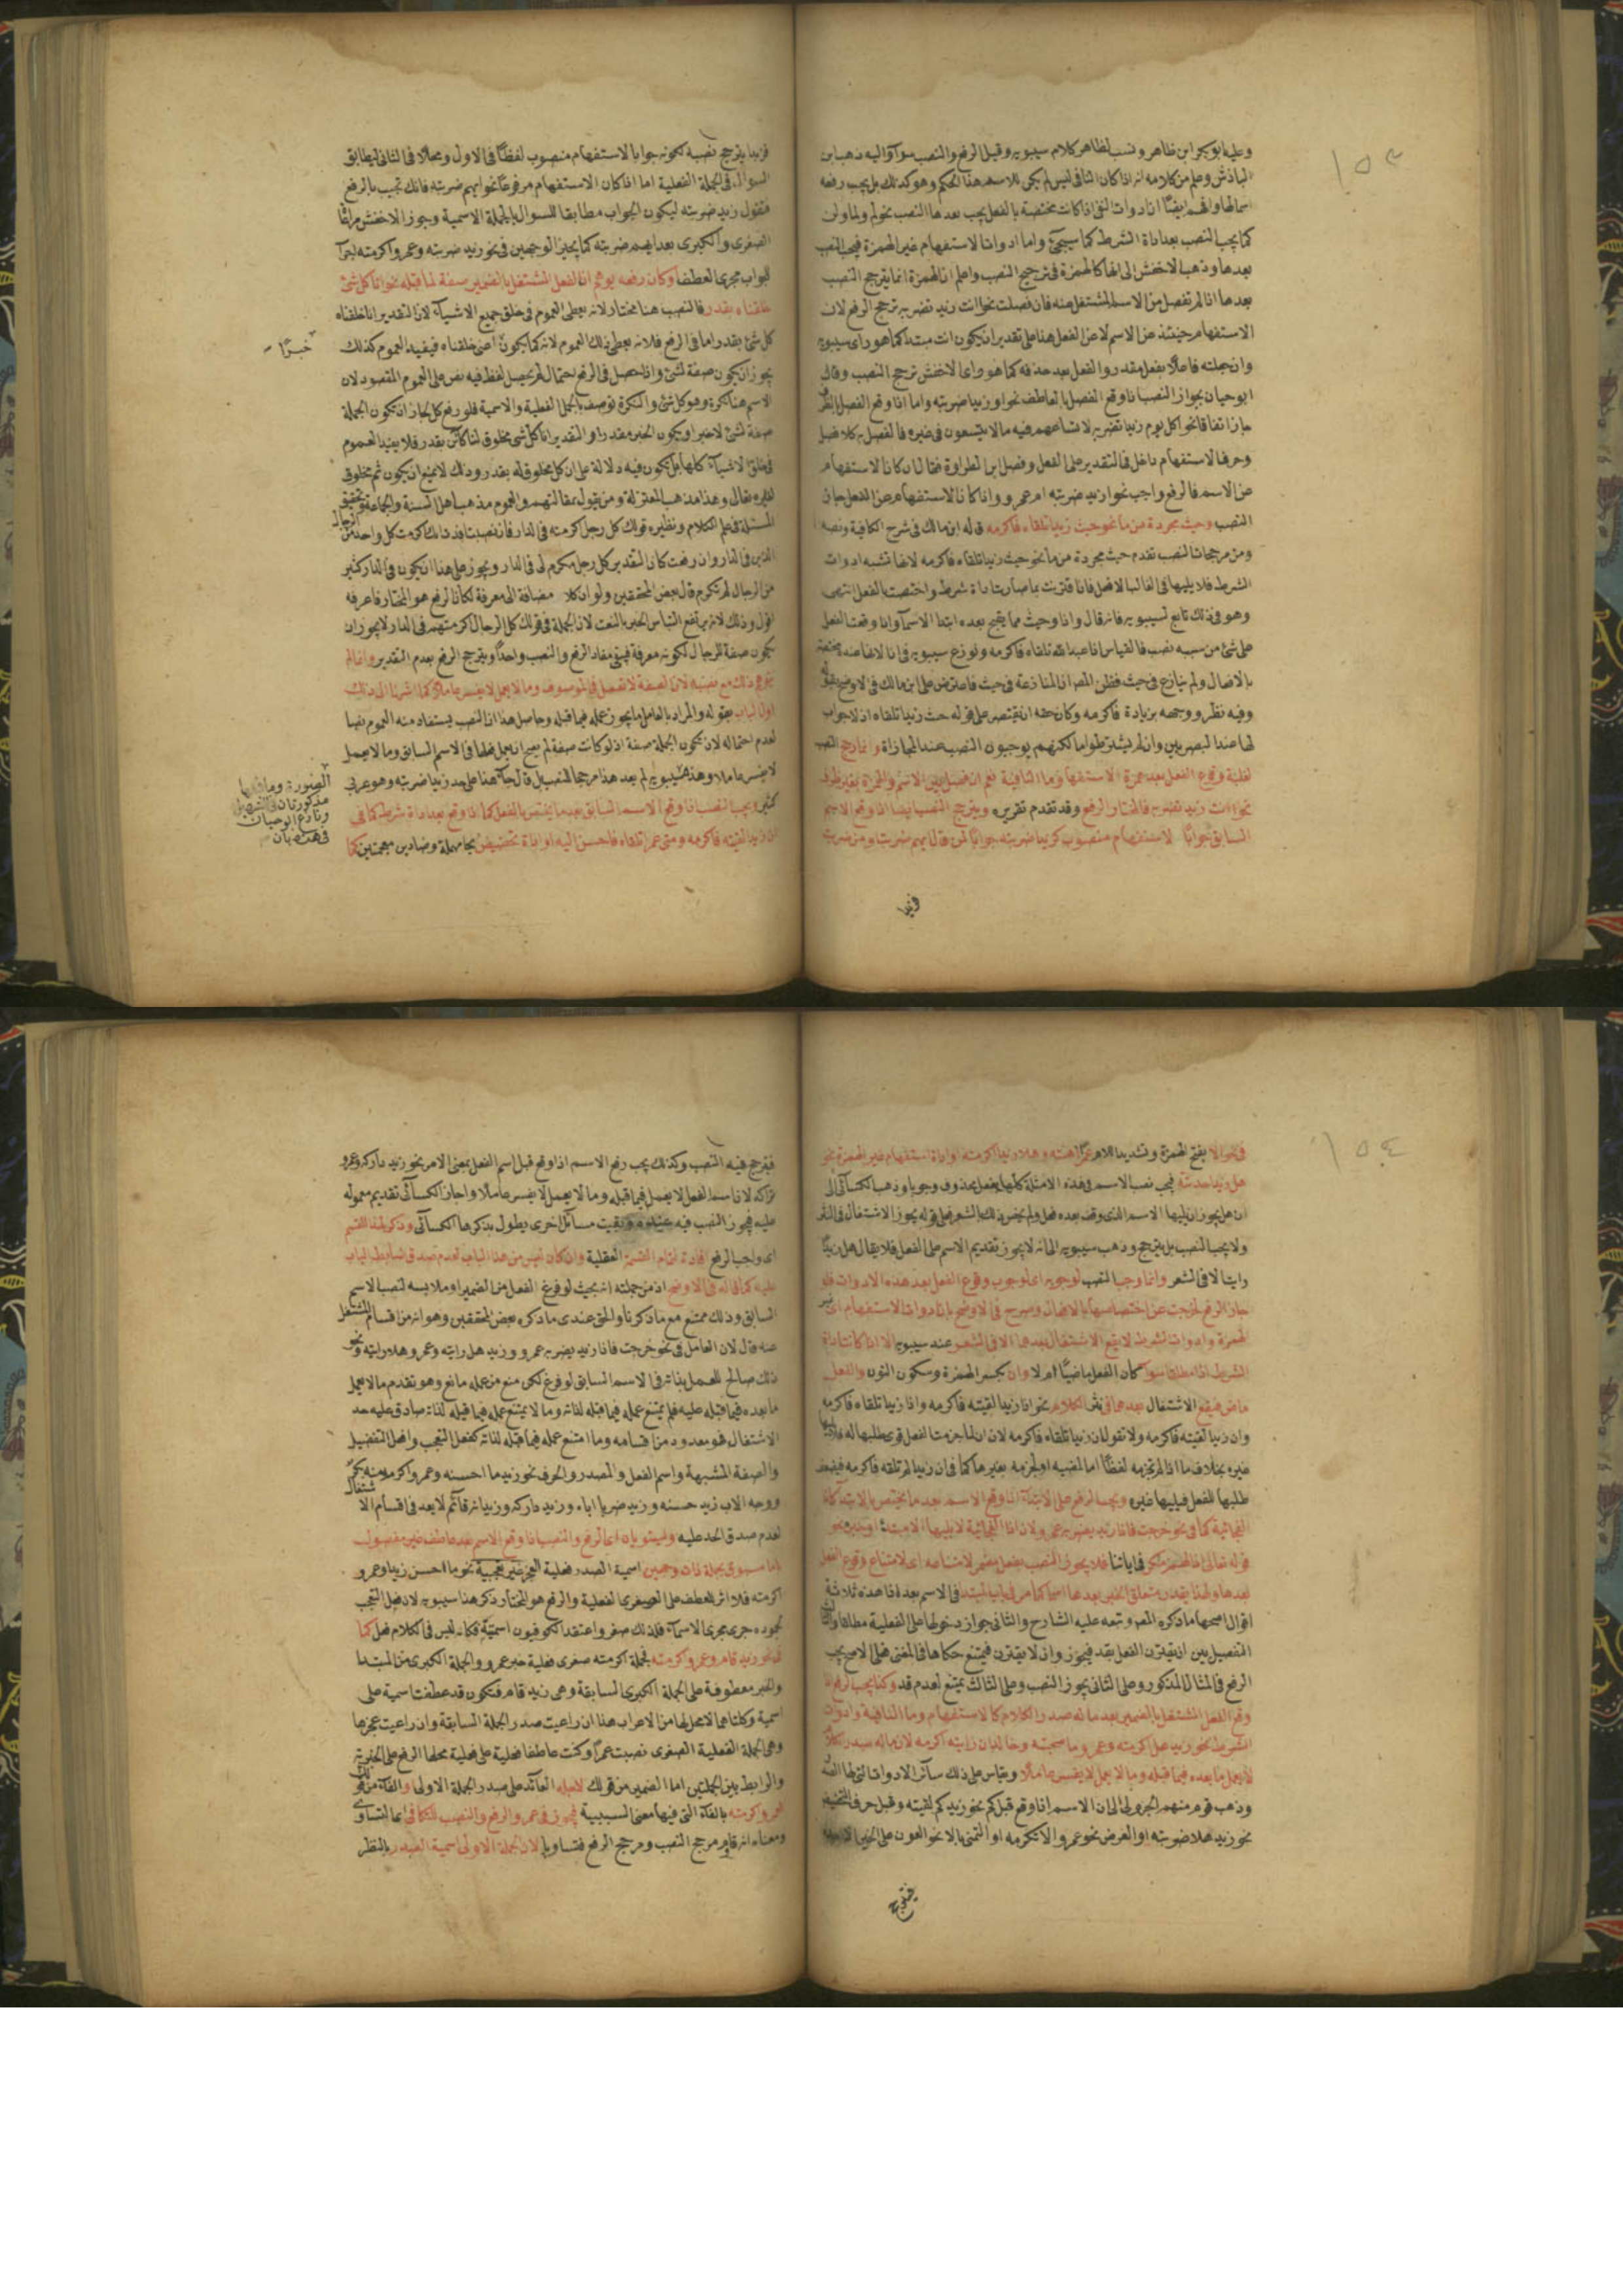 ١٥٣
وعليه ابو بكر ابن ظاهر ونسب لظاهر كلام سيبويه وقيل الرفع والنصب سواء واليه ذهب ابن
الباذش وعلم من كلامه انه اذا كان النافى ليس لم يكن للاسم هذا الحكم وهو كذلك بل يجب رفعه
اسما لها وافهم ايضًا ان ادوات النفى اذا كانت مختصة بالفعل يجب بعدها النصب نحو لم ولما ولن
كما يجب النصب بعد اداة الشرط كما سيجئ واما ادوات الاستفهام غير الهمزة فيجب النصب
بعدها وذهب الاخفش الى انها كالهمزة فى ترجيح النصب واعلم ان الهمزة انما يترجح النصب
بعدها اذا لم تفصل من الاسم المشتغل عنه فان فصلت نحو اانت زيد تضربه ترجح الرفع لان
الاستفهام حينئذ عن الاسم لا عن الفعل هنا على تقدير ان يكون انت مبتدا كما هو راى سيبويه
وان جعلته فاعلًا بفعل مقدر والفعل بعد حذفه كما هو راى الاخفش ترجح النصب وقال
ابو حيان بجواز النصب اذا وقع الفصل بالعاطف نحو او زيدا ضربته واما اذا وقع الفصل بالظرف
جاز اتفاقا نحو اكل يوم زيدا تضربه لاتساعهم فيه ما لا يتسعون فى غيره فالفصل به كلا فصل
وحرف الاستفهام داخل فى التقدير على الفعل وفصل ابن الطراوة فقال ان كان الاستفهام
عن الاسم فالرفع واجب نحو ازيد ضربته ام عمرو وان كان الاستفهام عن الفعل جاز
النصب وحيث مجردة من ما نحو حيث زيدا تلقاه فاكرمه قاله ابن مالك فى شرح الكافية ونصه
ومن مرجحات النصب تقدم حيث مجردة من ما نحو حيث زيدا تلقاه فاكرمه لانها تشبه ادوات
الشرط فلا يليها فى الغالب الا فعل فان اقترنت بما صارت اداة شرط واختصت بالفعل انتهى
وهو فى ذلك تابع لسيبويه فانه قال واذا وحيث مما يقبح بعده ابتدا الاسماء اذا وقعت الفعل
على شئ من سببه نصب فالقياس اذا عبد الله تلقاه فاكرمه ونوزع سيبويه فى اذا لانها عنده مختصة
بالافعال ولم ينازع فى حيث فظن المص ان المنازعة فى حيث فاعترض على ابن مالك فى الاوضح بقوله
وفيه نظر ووجهه بزيادة فاكرمه وكان حقه ان يقتصر على قوله حيث زيدا تلقاه اذ لا جواب
لها عند البصريين وان لم يشترطوا ما لكنهم يوجبون النصب عند المجازاة وانما رجح النصب
لغلبة وقوع الفعل بعد همزة الاستفهام وما النافية نعم ان فصل بين الاسم والهمزة بغير ظرف
نحو اانت زيد تضربه فالمختار الرفع وقد تقدم تقريره ويترجح النصب ايضا اذا وقع الاسم
السابق جوابًا لاستفهام منصوب كزيدا ضربته جوابًا لمن قال ايهم ضربت ومن ضربت
فزيدا
فزيدا يترجح نصبه لكونه جوابا لاستفهام منصوب لفظًا فى الاول ومحلًا فى الثانى ليطابق
السوال فى الجملة الفعلية اما اذا كان الاستفهام مرفوعًا نحو ايهم ضربته فانك تجيب بالرفع
فتقول زيد ضربته ليكون الجواب مطابقا للسوال بالجملة الاسمية وجوز الاخفش مراعاة
الصغرى والكبرى بعد ايهم ضربته كما يجيز الوجهين فى نحو زيد ضربته وعمرو اكرمته
الجواب مجرى العطف او كان رفعه يوهم ان الفعل المشتغل بالضمير صفة لما قبله نحو انا كل شئ
خلقناه بقدر فالنصب هنا مختار لانه يعطى العموم فى خلق جميع الاشياء لان التقدير انا خلقنا
كل شئ بقدر اما فى الرفع فلانه يعطى ذلك العموم لانه كما يكون اعنى خلقناه فيفيد العموم كذلك
خبرًا
يجوز ان يكون صفة لشئ واذا حصل فى الرفع احتمال لم يحصل لفظ فيه نص على العموم المقصود لان
الاسم هنا نكرة وهو كل شئ والنكرة توصف بالجمل الفعلية والاسمية فلو رفع كل لجاز ان تكون الجملة
صفة لشئ لا خبرا ويكون الخبر مقدرا والتقدير انا كل شئ مخلوق لنا كائن بقدر فلا يفيد العموم
فى خلق الاشياء كلها بل يكون فيه دلالة على ان كل مخلوق له بقدر وذلك لا يمنع ان يكون ثم مخلوق
لغيره تعالى وهذا مذهب المعتزلة ومن يقول بمقالتهم والعموم مذهب اهل السنة والجماعة وتحقيق
المسئلة فى علم الكلام ونظيره قولك كل رجل اكرمته فى الدار فان نصبت افد انك اكرمت كل واحد من الرجال
الذين فى الدار وان رفعت كان التقدير كل رجل مكرم لى فى الدار ويجوز على هذا ان يكون فى الدار كثير
من الرجال لم تكرم قال بعض المحققين ولو ان كلا مضافة الى معرفة لكان الرفع هو المختار فاعرفه
اقول وذلك لانه يرتفع التباس الخبر بالنعت لان الجملة فى قولك كل الرجال اكرمتهم فى الدار لا يجوز ان
تكون صفة للرجال لكونه معرفة فيبقى مفاد الرفع والنصب واحدًا ويترجح الرفع بعدم التقدير وانما لم
يتوهم ذلك مع نصبه لان الصفة لا تعمل فى الموصوف وما لا يعمل لا يفسر عاملًا كما اشرنا الى ذلك
اول الباب بقوله والمراد بالعامل ما يجوز عمله فيما قبله وحاصل هذا ان النصب يستفاد منه العموم نصا
لعدم احتماله لان تكون الجملة صفة اذ لو كانت صفة لم يصح ان يعمل فعلها فى الاسم السابق وما لا يعمل
لا يفسر عاملا وهذه سيبويه لم يعد هذا مرجحا للنصب بل قال جاء هنا على حد زيدا ضربته وهو عربى
الصورة وما قبلها
مذكورتان فى التسهيل
ونازع ابو حيان
فى هذه بان
كثير ويجب النصب اذا وقع الاسم السابق بعد ما يختص بالفعل كما اذا وقع بعد اداة شرط كما فى
ان زيدا لقيته فاكرمه ومتى عمرا تلقاه فاحسن اليه او اداة تحضيض بحا مهملة وضادين معجمتين كما
١٥٤
فى نحو الا بفتح الهمزة وتشديد اللام عمرًا اهنته وهلا زيدا اكرمته او اداة استفهام غير الهمزة نحو
هل زيدا حدثته فيجب نصب الاسم فى هذه الامثلة كلها بفعل محذوف وجوبا وذهب الكسائى الى
ان هل يجوز ان يليها الاسم الذى وقع بعده فعل ولم يخص ذلك بالشعر فعلى قوله يجوز الاشتغال فى النثر
ولا يجب النصب بل يترجح وذهب سيبويه الى انه لا يجوز تقديم الاسم على الفعل فلا يقال هل زيدًا
رايت الا فى الشعر وانما وجب النصب لوجوبه اى لوجوب وقوع الفعل بعد هذه الادوات فلو
جاز الرفع لخرجت عن اختصاصها بالافعال وصرح فى الاوضح بان ادوات الاستفهام اى غير
الهمزة وادوات الشرط لا يقع الاشتغال بعدها الا فى الشعر عند سيبويه الا اذا كانت اداة
الشرط اذا مطلقا سواء كان الفعل ماضيًا ام لا وان بكسر الهمزة وسكون النون والفعل
ماض فيقع الاشتغال بعدهما فى نثر الكلام نحو اذا زيدا لقيته فاكرمه واذا زيدا تلقاه فاكرمه
وان زيدا لقيته فاكرمه ولا تقول ان زيدا تلقاه فاكرمه لان ان لما جزمت الفعل قوى طلبها له فلا يليها
غيره بخلاف ما اذا لم تجزمه لفظًا اما لمضيه او لجزمه بغيرها كما فى ان زيدا لم تلقه فاكرمه فيضعف
طلبها للفعل فيليها غيره ويجب الرفع على الابتداء اذا وقع الاسم بعد ما يختص بالابتداء كاذا
الفجائية كما فى نحو خرجت فاذا زيد يضربه عمرو لان اذا الفجائية لا يليها الا مبتدا او خبر نحو
قوله تعالى اذا لهم مكر فى اياتنا فلا يجوز النصب بفعل مضمر لامتناعه اى لامتناع وقوع الفعل
بعدها ولهذا يقدر متعلق الخبر بعدها اسما كما مر فى باب المبتدا فى الاسم بعد اذا هذه ثلاثة
اقوال اصحها ما ذكره المص وتبعه عليه الشارح والثانى جواز دخولها على الفعلية مطلقا والثالث
التفصيل بين ان يقترن الفعل بقد فيجوز وان لا يقترن فيمتنع حكاها فى المغنى فعلى الاصح يجب
الرفع فى المثال المذكور وعلى الثانى يجوز النصب وعلى الثالث يمتنع لعدم قد وكذا يجب الرفع اذا
وقع الفعل المشتغل بالضمير بعد ما له صدر الكلام كالاستفهام وما النافية وادوات
الشرط نحو زيد هل اكرمته وعمرو ما صحبته وخالد ان رايته اكرمه لان ما له صدر الكلام
لا يعمل ما بعده فيما قبله وما لا يعمل لا يفسر عاملًا ويقاس على ذلك سائر الادوات التى لها الصدر
وذهب قوم منهم الجزولى الى ان الاسم اذا وقع قبل كم نحو زيد كم لقيته وقبل حرف التحضيض
نحو زيد هلا ضربته او العرض نحو عمرو الا تكرمه او التمنى بالا نحو العون على الخير الا
فيترجح
فيترجح فيه النصب وكذلك يجب رفع الاسم اذا وقع قبل اسم الفعل بمعنى الامر نحو زيد دراكه وعمرو
تراكه لان اسم الفعل لا يعمل فيما قبله وما لا يعمل لا يفسر عاملًا واجاز الكسائى تقديم معموله
عليه فيجوز النصب فيه عنده وبقيت مسائل اخرى يطول بذكرها الكسائى وذكر لهذا القسم
اى واجب الرفع افادة لتمام القسمة العقلية وان كان ليس من هذا الباب لعدم صدق ضابط الباب
عليه كما قاله فى الاوضح اذ من جملته انه بحيث لو فرغ الفعل من الضمير او ملابسه لنصب الاسم
السابق وذلك ممتنع مع ما ذكرنا والحق عندى ما ذكره بعض المحققين وهو انه من اقسام المشتغل
عنه قال لان العامل فى نحو خرجت فاذا زيد يضربه عمرو وزيد هل رايته وعمرو هلا رايته ونحو
ذلك صالح للعمل بذاته فى الاسم السابق لو فرغ لكن منع من عمله مانع وهو تقدم ما لا يعمل
ما بعده فيما قبله عليه فلم يمتنع عمله فيما قبله لذاته وما لا يمتنع عمله فيما قبله لذاته صادق عليه حد
الاشتغال فهو معدود من اقسامه وما امتنع عمله فيما قبله لذاته كفعل التعجب وافعل التفضيل
والصفة المشبهة واسم الفعل والمصدر والحرف نحو زيد ما احسنه وعمرو اكرم منه بكر
ووجه الاب زيد حسنه وزيد ضربا اياه وزيد دراكه وزيد انه قائم لا يعد فى اقسام الاشتغال
لعدم صدق الحد عليه ويستويان اى الرفع والنصب اذا وقع الاسم بعد عاطف غير مفصول
باما مسبوق بجملة ذات وجهين اسمية الصدر فعلية العجز غير تعجبية نحو ما احسن زيدا وعمرو
اكرمته فلا اثر للعطف على الصغرى الفعلية والرفع هو المختار ذكر هذا سيبويه لان فعل التعجب
لجموده جرى مجرى الاسماء فلذلك صغر واعتقد الكوفيون اسميته فكانه ليس فى الكلام فعل كما
فى نحو زيد قام وعمرو اكرمته فجملة اكرمته صغرى فعلية خبر عمرو والجملة الكبرى من المبتدا
والخبر معطوفة على الجملة الكبرى السابقة وهى زيد قام فتكون قد عطفت اسمية على
اسمية وكلتاهما لا محل لها من الاعراب هذا ان راعيت صدر الجملة السابقة وان راعيت عجزها
وهى الجملة الفعلية الصغرى نصبت عمرًا وكنت عاطفا فعلية على فعلية محلها الرفع على الخبرية
والرابط بين الجملتين اما الضمير من قولك لاجله العائد على صدر الجملة الاولى او الفاء من قولك
فعمرو اكرمته بالفاء التى فيها معنى السببية فيجوز فى عمرو الرفع والنصب للتكافى اى التساوى
ومعناه انه قام مرجح النصب ومرجح الرفع فتساويا لان الجملة الاولى اسمية الصدر بالنظر